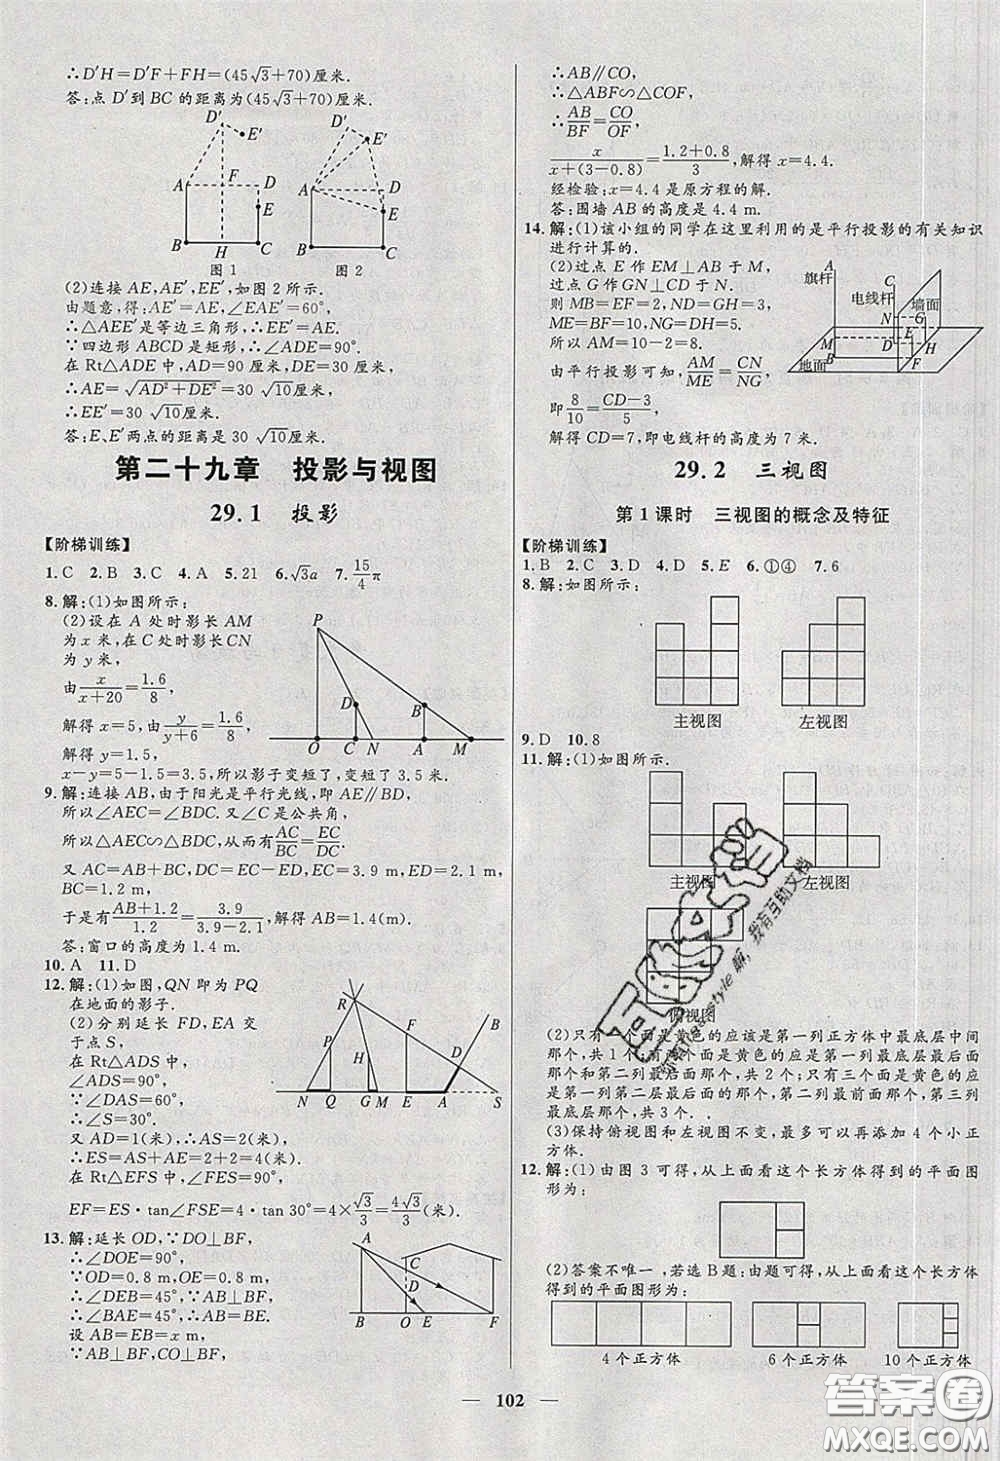 ∴D′H=D′F+FH=(45√3+70)厘米.
答:点 D′到 BC 的距离为(45√3+70)厘米.
D′
E′
A
F
D
E
B
H
C
图 1
D′
E′
A
D
E
B
C
图 2
(2)连接 AE,AE′,EE′,如图 2 所示.
由题意,得:AE′=AE,∠EAE′=60°,
∴△AEE′是等边三角形,∴EE′=AE.
∵四边形 ABCD 是矩形,∴∠ADE=90°.
在 Rt△ADE 中,AD=90 厘米,DE=30 厘米,
∴AE=√(AD²+DE²)=30 √10厘米,
∴EE′=30 √10厘米.
答:E、E′两点的距离是 30 √10厘米.
第二十九章 投影与视图
29.1 投影
【阶梯训练】
1.C 2.B 3.C 4.A 5.21 6.√3a 7.15/4 π
8.解:(1)如图所示:
(2)设在 A 处时影长 AM
为 x 米,在 C 处时影长 CN
为 y 米,
由 x/(x+20)=1.6/8,
解得 x=5,由 y/(y+6)=1.6/8,
解得 y=1.5,
P
D
B
O C N A M
x-y=5-1.5=3.5,所以影子变短了,变短了 3.5 米.
9.解:连接 AB,由于阳光是平行光线,即 AE∥BD,
所以∠AEC=∠BDC.又∠C 是公共角,
所以△AEC∽△BDC,从而有 AC/BC=EC/DC.
又 AC=AB+BC,DC=EC-ED,EC=3.9 m,ED=2.1 m,
BC=1.2 m,
于是有 (AB+1.2)/1.2=3.9/(3.9-2.1),解得 AB=1.4(m).
答:窗口的高度为 1.4 m.
10.A 11.D
12.解:(1)如图,QN 即为 PQ
在地面的影子.
(2)分别延长 FD,EA 交
于点 S,
在 Rt△ADS 中,
∠ADS=90°,
∵∠DAS=60°,
∴∠S=30°.
R
B
P
F
H
D
N Q G M E A S
又 AD=1(米),∴AS=2(米),
∴ES=AS+AE=2+2=4(米).
在 Rt△EFS 中,∠FES=90°,
EF=ES·tan∠FSE=4·tan 30°=4×√3/3=4√3/3(米).
13.解:延长 OD,∵DO⊥BF,
∴∠DOE=90°,
∵OD=0.8 m,OE=0.8 m,
∴∠DEB=45°,∵AB⊥BF,
∴∠BAE=45°,∴AB=BE.
设 AB=EB=x m,
∵AB⊥BF,CO⊥BF,
A
C
D
B O E F
∴AB∥CO,
∴△ABF∽△COF,
∴AB/BF=CO/OF,
x/(x+(3-0.8))=(1.2+0.8)/3,解得 x=4.4.
经检验:x=4.4 是原方程的解.
答:围墙 AB 的高度是 4.4 m.
14.解:(1)该小组的同学在这里利用的是平行投影的有关知识
进行计算的.
(2)过点 E 作 EM⊥AB 于 M,
过点 G 作 GN⊥CD 于 N.
则 MB=EF=2,ND=GH=3,
ME=BF=10,NG=DH=5.
所以 AM=10-2=8,
由平行投影可知,AM/ME=CN/NG,
即 8/10=(CD-3)/5,
解得 CD=7,即电线杆的高度为 7 米.
A
旗杆
C
电线杆
墙面
N G
M
E
D H
B
F
地面
29.2 三视图
第 1 课时 三视图的概念及特征
【阶梯训练】
1.B 2.C 3.D 4.D 5.E 6.①④ 7.6
8.解:如图所示:
主视图
左视图
9.D 10.8
11.解:(1)如图所示.
主视图
左视图
俯视图
(2)只有一个面是黄色的应该是第一列正方体中最底层中间
那个,共 1 个;有两个面是黄色的应是第一列最底层最后面
那个和第二列最后面那个,共 2 个;只有三个面是黄色的应
是第一列最底层最前面的那个,第二列最前面那个,第三列
最底层那个,共 3 个.
(3)保持俯视图和左视图不变,最多可以再添加 4 个小正
方体.
12.解:(1)由图 3 可得,从上面看这个长方体得到的平面图
形为:
(2)答案不唯一,若选 B 题:由题可得,从上面看这个长方体
得到的平面图形为:
4 个正方体
6 个正方体
10 个正方体
102
答案圈
MXQE.COM